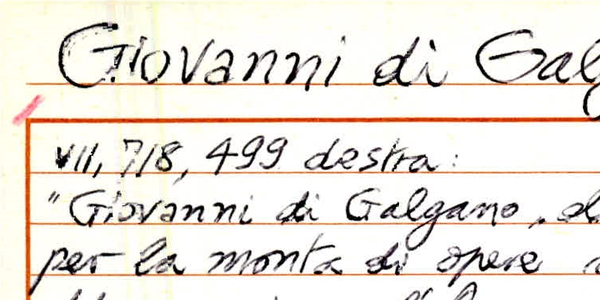 Giovanni di Galg
VII, 7/8, 499 destra:
"Giovanni di Galgano,
per la monta di opere